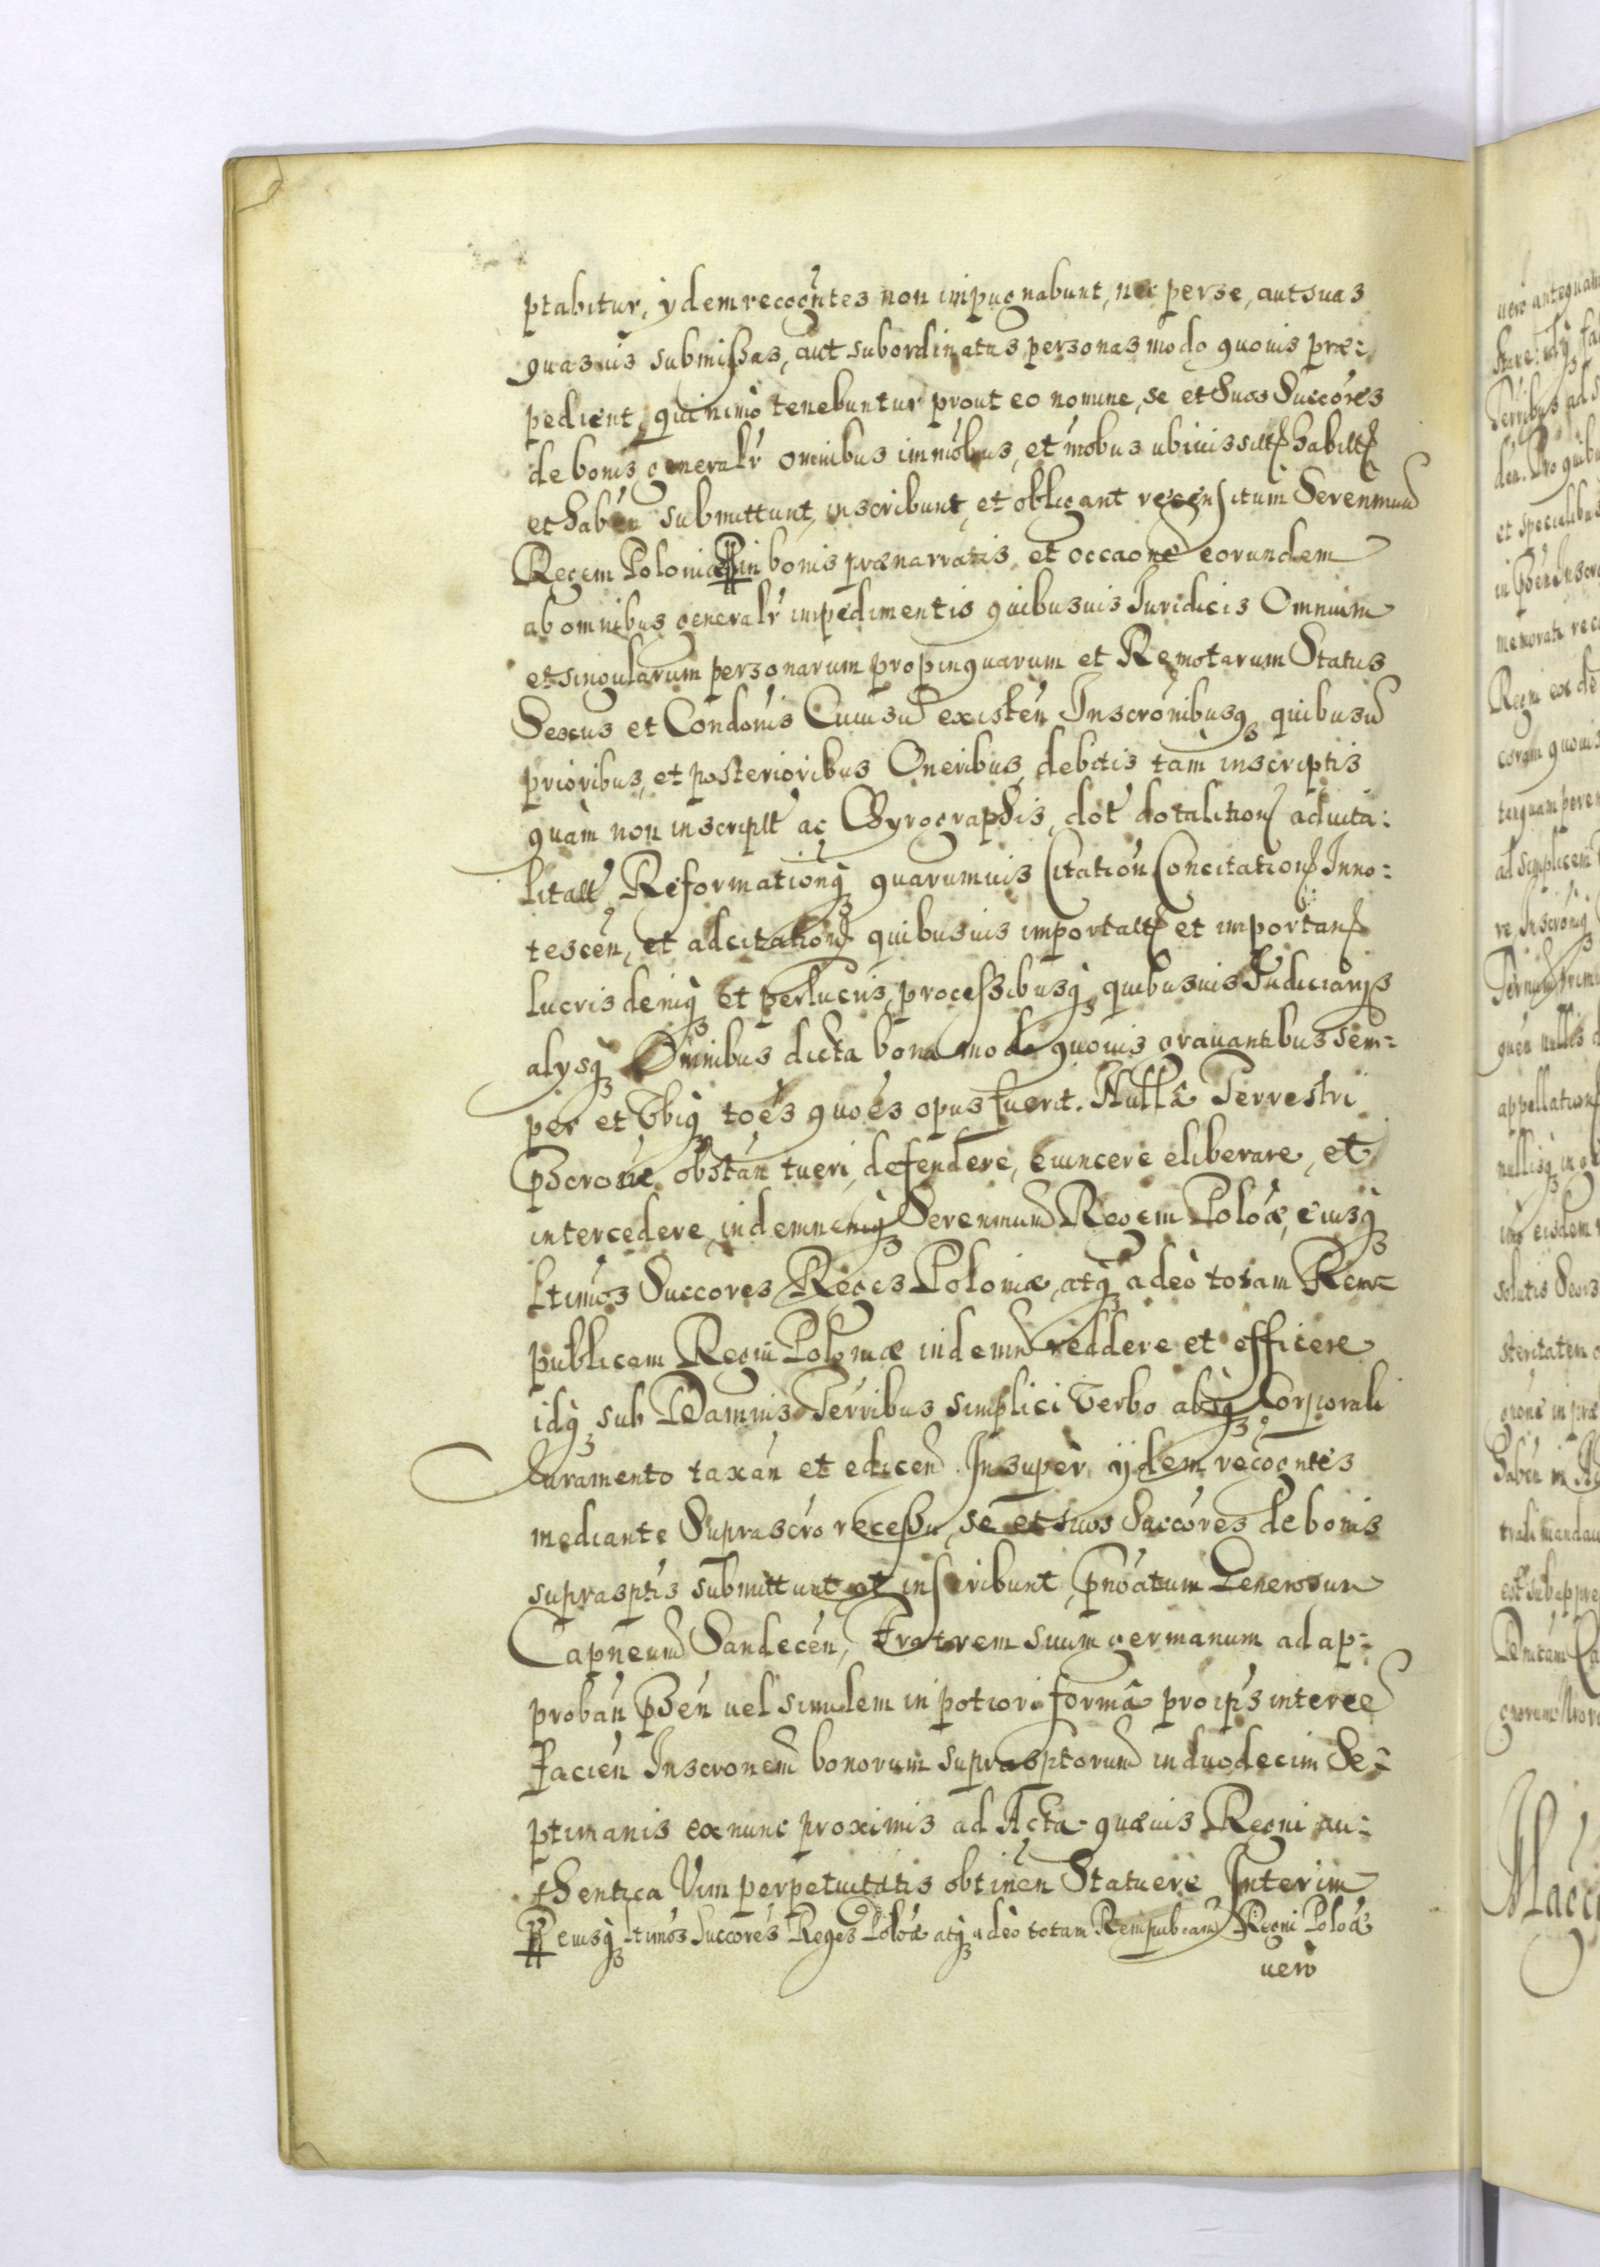 ptabitur, ijdem recogntes non impugnabunt, nec per se, aut suas
quasuis submissas, aut subordinatas personas modo quouis præ:
pedient, quinimò tenebuntur prout eo nomine, se et Suos Succóres
de bonis generalr omnibus immóbus, et móbus ubiuis
et habén submittunt, inscribunt, et obligant recensitum Serenmum
Regem Poloniæ ╫ in bonis prænarratis et occaone eorundem
ab omnibus generalr impedimentis quibusuis Iuridicis Omnium
et singularum personarum propinquarum et Remotarum Status
Sexus et Condonis Cuiusu existén Inscronibusq quibusu
prioribus, et posterioribus Oneribus, debitis tam inscriptis
quàm non inscriptt ac Chyrographis, dot dotalition aduita:
litatt Reformationq quarumuis Citation Concitation Inno:
tescén, et adcitation quibusuis importatt et importan
lucris deniq et perlucris, processibusq quibusuis Iudiciarijs
alysq Omnibus dicta bona modo quouis grauantibus sem:
per et Vbiq toés quoés opus fuerit. Nullâ Terrestri
Pscrone obstán tueri, defendere, euincere eliberare, et
intercedere, indemnemq Serenmum Regem Poloæ, eiusq
Ltimos Succores Reges Poloniæ, atq adeò totam Rem:
publicam Regni Poloniæ indemn reddere et efficere
idq sub Damnis Terribus simplici Verbo absq Corporali
Iuramento taxán et edicen. Insuper ijdem recogntes
mediante Suprascro recessu, se et suos Succóres de bonis
suprasptis submittunt et inscribunt, pnoatum Generosum
Capneum Sandecén, Fratrem suum germanum ad ap:
probán Psén uel similem in potiori formâ pro ipis interce
facién Inscronem bonorum supra sptorum in duodecim Se:
ptimanis ex nunc proximis ad Acta quæuis Regni au:
thentica Vim perpetuitatis obtinén Statuere Interim
╫ eiusq Ltimos Succores Reges Poloæ atq adeò totam Rempubcam Regni Poloæ
uerò